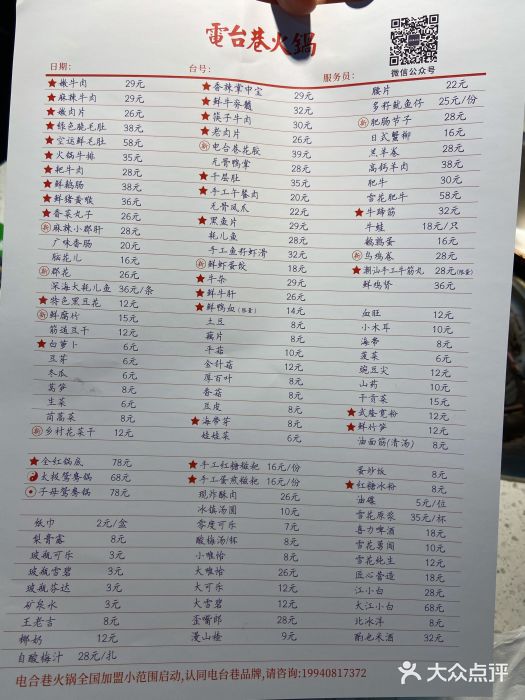 電台巷火鍋
微信公众号
日期: 台号: 服务员:
★嫩牛肉 29元
★麻辣牛肉 29元
★嫩肉片 26元
★绿色脆毛肚 38元
★空运鲜毛肚 58元
★火锅牛排 35元
★耙牛肉 28元
★鲜鹅肠 38元
★鲜猪黄喉 36元
★香菜丸子 26元
新麻辣小郡肝 28元
广味香肠 20元
脑花儿 16元
新郡花 26元
深海大耗儿鱼 36元/条
★特色黑豆花 12元
新鲜腐竹 15元
筋道豆干 12元
★白萝卜 6元
豆芽 6元
冬瓜 6元
莴笋 8元
生菜 6元
茼蒿菜 8元
新乡村花菜干 12元
★香辣掌中宝 29元
★鲜牛脊髓 32元
★筷子牛肉 30元
★老肉片 26元
新电台巷花胶 39元
无骨鸭掌 28元
★千层肚 35元
★手工午餐肉 20元
无骨凤爪 22元
★黑鱼片 29元
耗儿鱼 28元
手工鱼籽虾滑 32元
新鲜虾蛋饺 18元
★牛杂 29元
★鲜牛肝 26元
★鲜鸭血(限量) 14元
土豆 8元
藕片 8元
平菇 10元
金针菇 12元
厚百叶 8元
香菇 8元
豆皮 8元
★海带芽 8元
娃娃菜 6元
腰片 22元
多籽鱿鱼仔 25元/份
新肥肠节子 28元
日式蟹柳 16元
羔羊卷 28元
高钙羊肉 38元
肥牛 30元
雪花肥牛 58元
★牛蹄筋 32元
牛蛙 18元/只
鹌鹑蛋 16元
新乌鸡卷 28元
★潮汕手工牛筋丸 28元(限量)
鲜鸡肾 36元
血旺 12元
小木耳 10元
海带 8元
菠菜 6元
豌豆尖 12元
山药 10元
干贡菜 15元
★武隆宽粉 12元
★鲜竹笋 12元
油面筋(清汤) 8元
★全红锅底 78元
太极鸳鸯锅 68元
子母鸳鸯锅 78元
★手工红糖糍粑 16元/份
★手工蛋煎糍粑 16元/份
现炸酥肉 26元
冰镇汤圆 10元
零度可乐 7元
酸梅汤/杯 8元
小唯怡 8元
大唯怡 26元
大可乐 12元
大雪碧 12元
歪嘴郎 28元
漫山楂 9元
蛋炒饭 8元
★红糖冰粉 8元
油碟 5元/位
雪花原浆 35元/杯
喜力啤酒 18元
雪花勇闯 10元
雪花纯生 12元
匠心营造 18元
江小白 28元
大江小白 68元
北冰洋 8元
酌也米酒 32元
纸巾 2元/盒
梨膏露 8元
玻瓶可乐 3元
玻瓶雪碧 3元
玻瓶芬达 3元
矿泉水 3元
王老吉 8元
椰奶 12元
自酸梅汁 28元/扎
电台巷火锅全国加盟小范围启动,认同电台巷品牌,请咨询:19940817372
大众点评